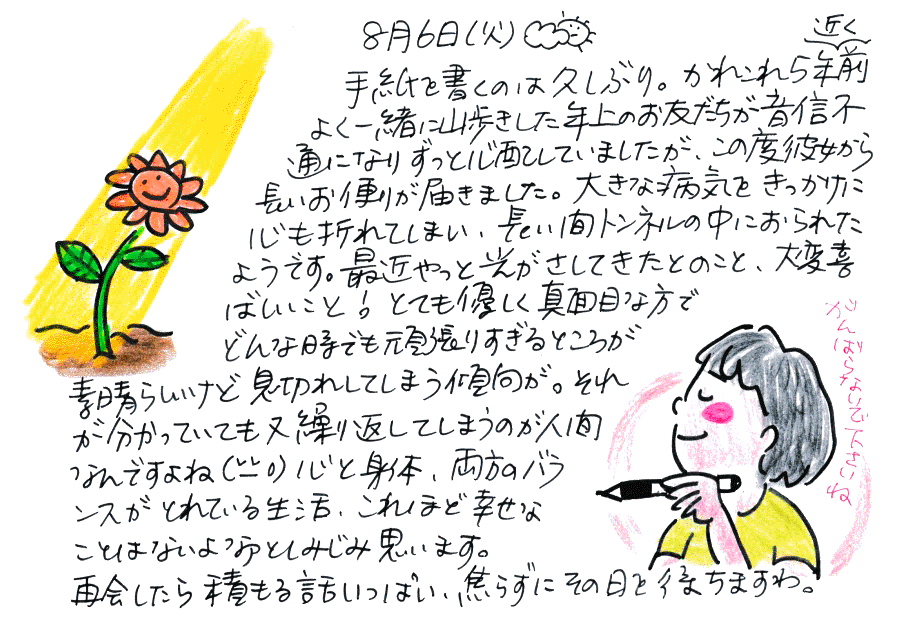 8月6日(火)
手紙を書くのは久しぶり。かれこれ5年前近く
よく一緒に山歩きした年上のお友だちが音信不
通になりずっと心配していましたが、この度彼女から
長いお便りが届きました。大きな病気をきっかけに
心も折れてしまい、長い間トンネルの中におられた
ようです。最近やっと光がさしてきたとのこと、大変喜
ばしいこと！とても優しく真面目な方で
どんな時でも頑張りすぎるところが
素晴らしいけど息切れしてしまう傾向が。それ
が分かっていても又繰り返してしまうのが人間
なんですよね 心と身体、両方のバラ
ンスがとれている生活、これほど幸せな
ことはないよなあとしみじみ思います。
再会したら積もる話いっぱい、焦らずにその日を待ちますわ。
がんばらないで下さいね